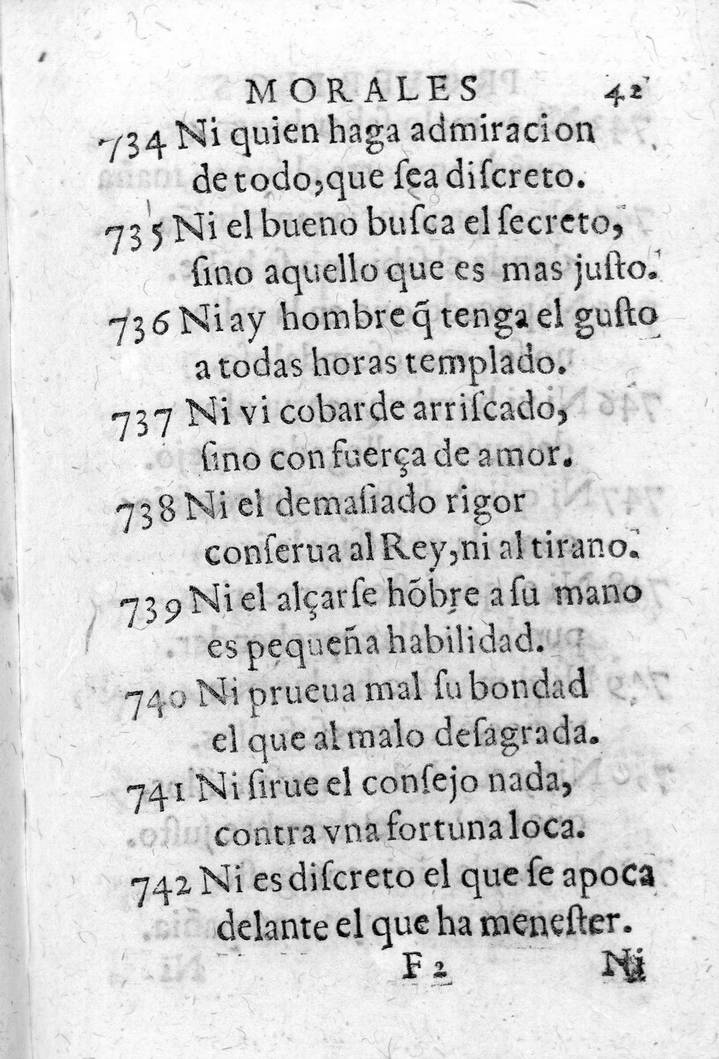 MORALES 42
734 Ni quien haga admiracion
de todo, que ſea diſcreto.
735 Ni el bueno buſca el ſecreto,
ſino aquello que es mas juſto.
736 Ni ay hombre q̃ tenga el guſto
a todas horas templado.
737 Ni vi cobarde arriſcado,
ſino con fuerça de amor.
738 Ni el demaſiado rigor
conſerua al Rey, ni al tirano.
739 Ni el alçarſe hõbre a ſu mano
es pequeña habilidad.
740 Ni prueua mal ſu bondad
el que al malo deſagrada.
741 Ni ſirue el conſejo nada,
contra vna fortuna loca.
742 Ni es diſcreto el que ſe apoca
delante el que ha meneſter.
F 2 Ni